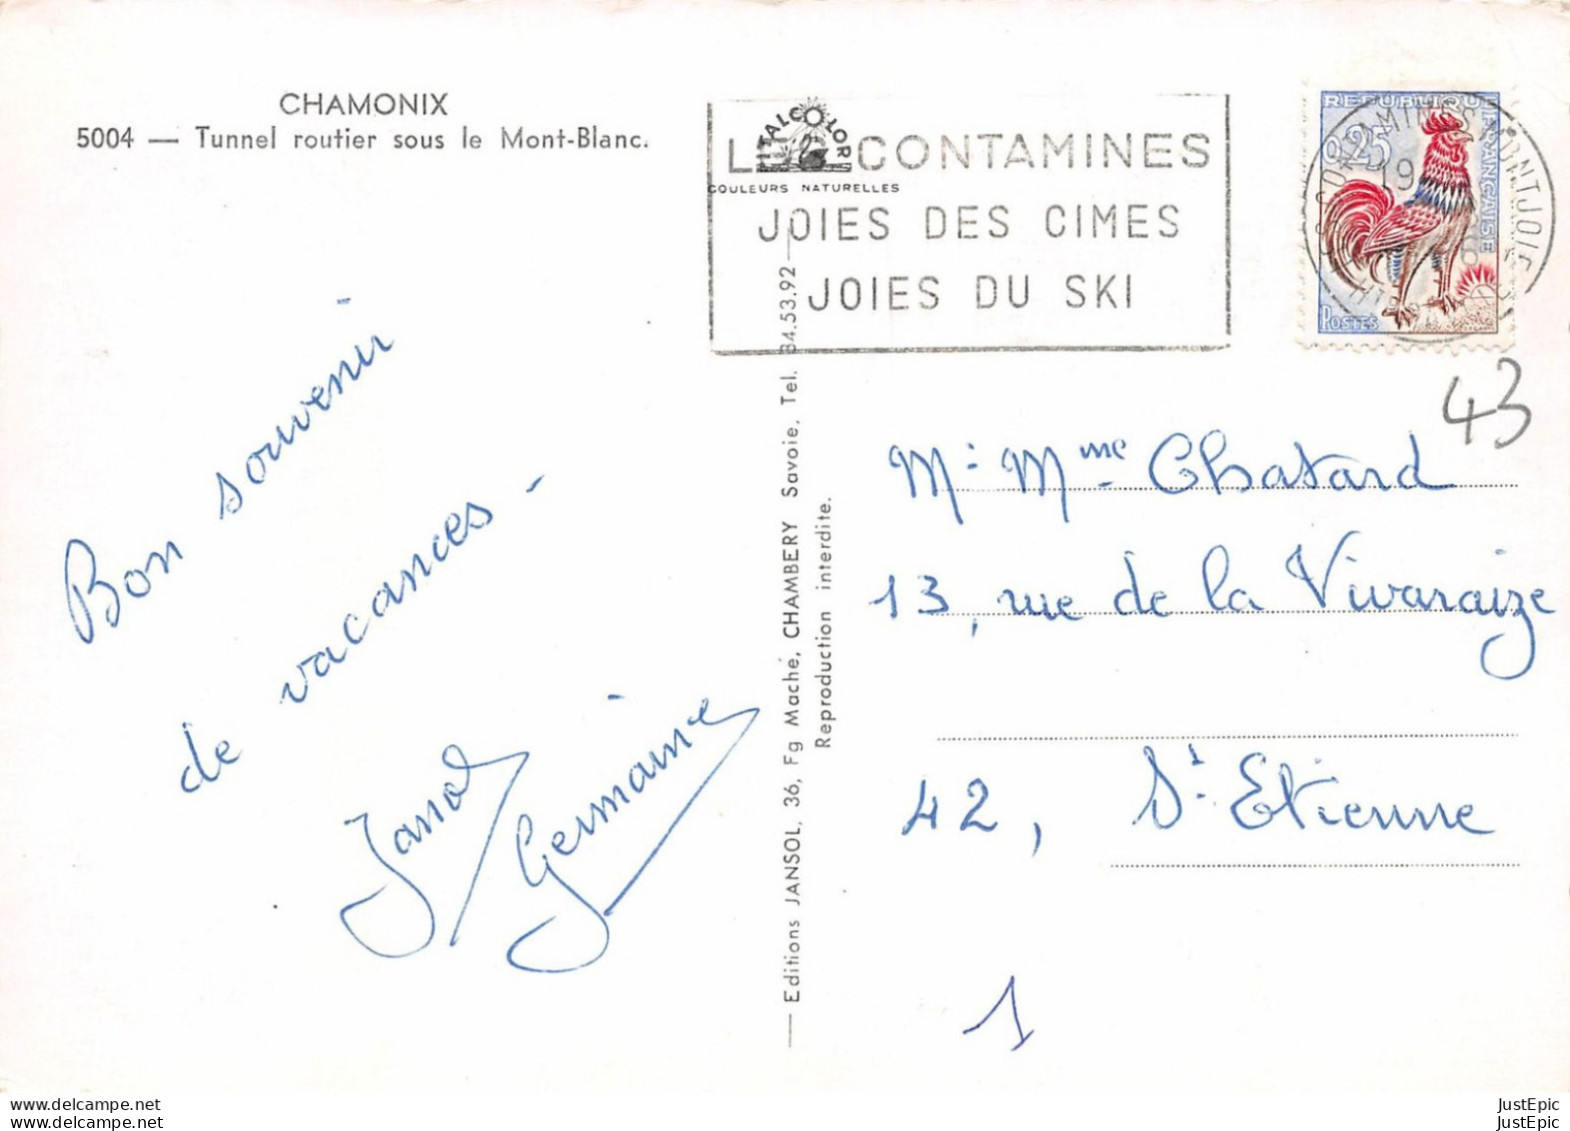 CHAMONIX
5004 — Tunnel routier sous le Mont-Blanc.
ITALCOLOR
COULEURS NATURELLES
LES CONTAMINES
JOIES DES CIMES
JOIES DU SKI
REPUBLIQUE FRANÇAISE
0,25
POSTES
43
Bon souvenir
de vacances -
Germaine
— Editions JANSOL, 36, Fg Maché, CHAMBERY Savoie. Tel. 34.53.92 —
Reproduction interdite.
M. Mme Chatard
13, rue de la Vivaraize
42, St. Etienne
1
delcampe.net
delcampe.net
JustEpic
JustEpic